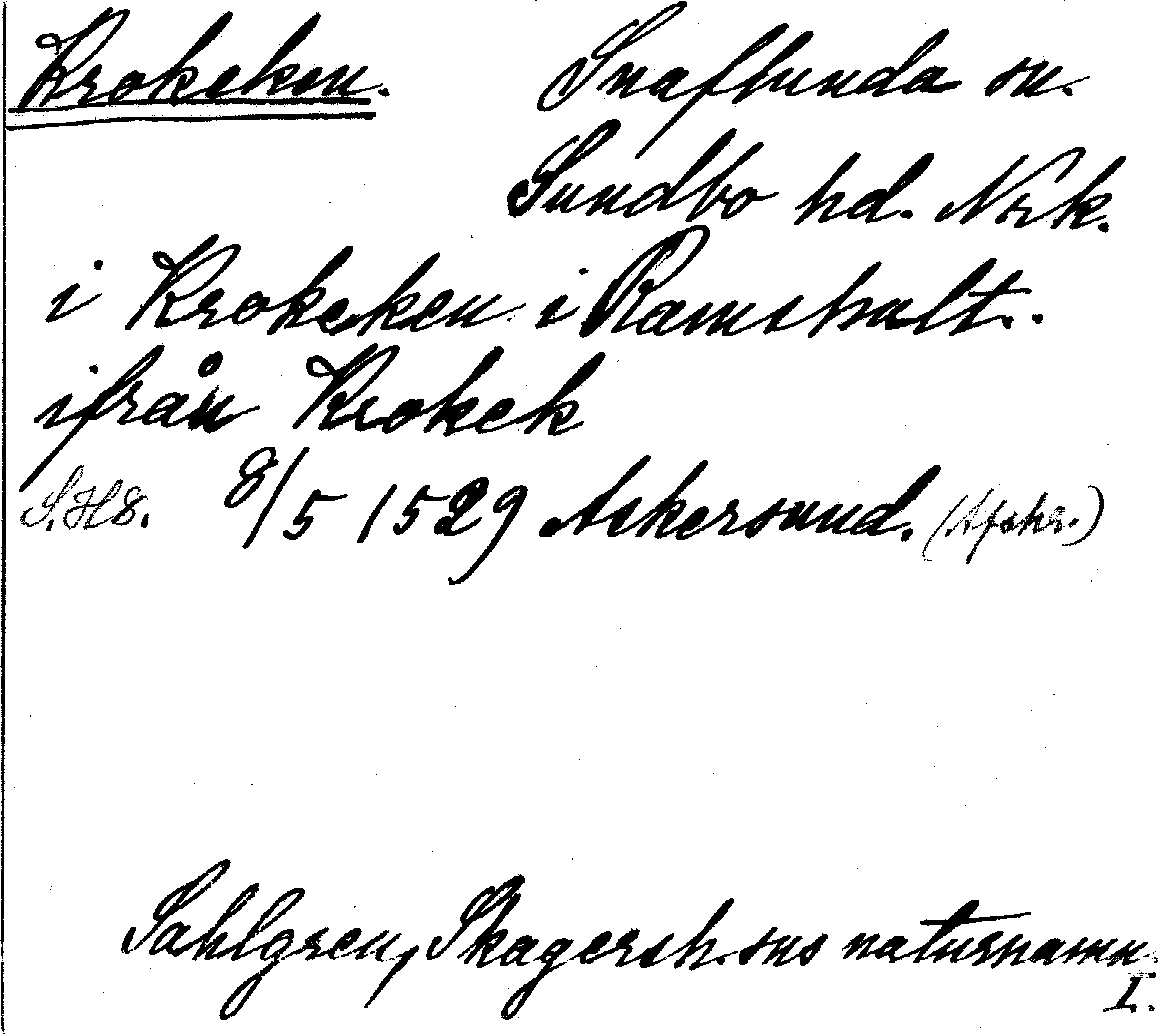 Krokeken. Snaflunda sn.
Sundbo hd. Nrk.
i Krokeken i Ramshult..
ifrån Krokek
S.H8. 8/5 1529 Askersund. (Afskr.)
Sahlgren, Skagersh. sns naturnamn
I.